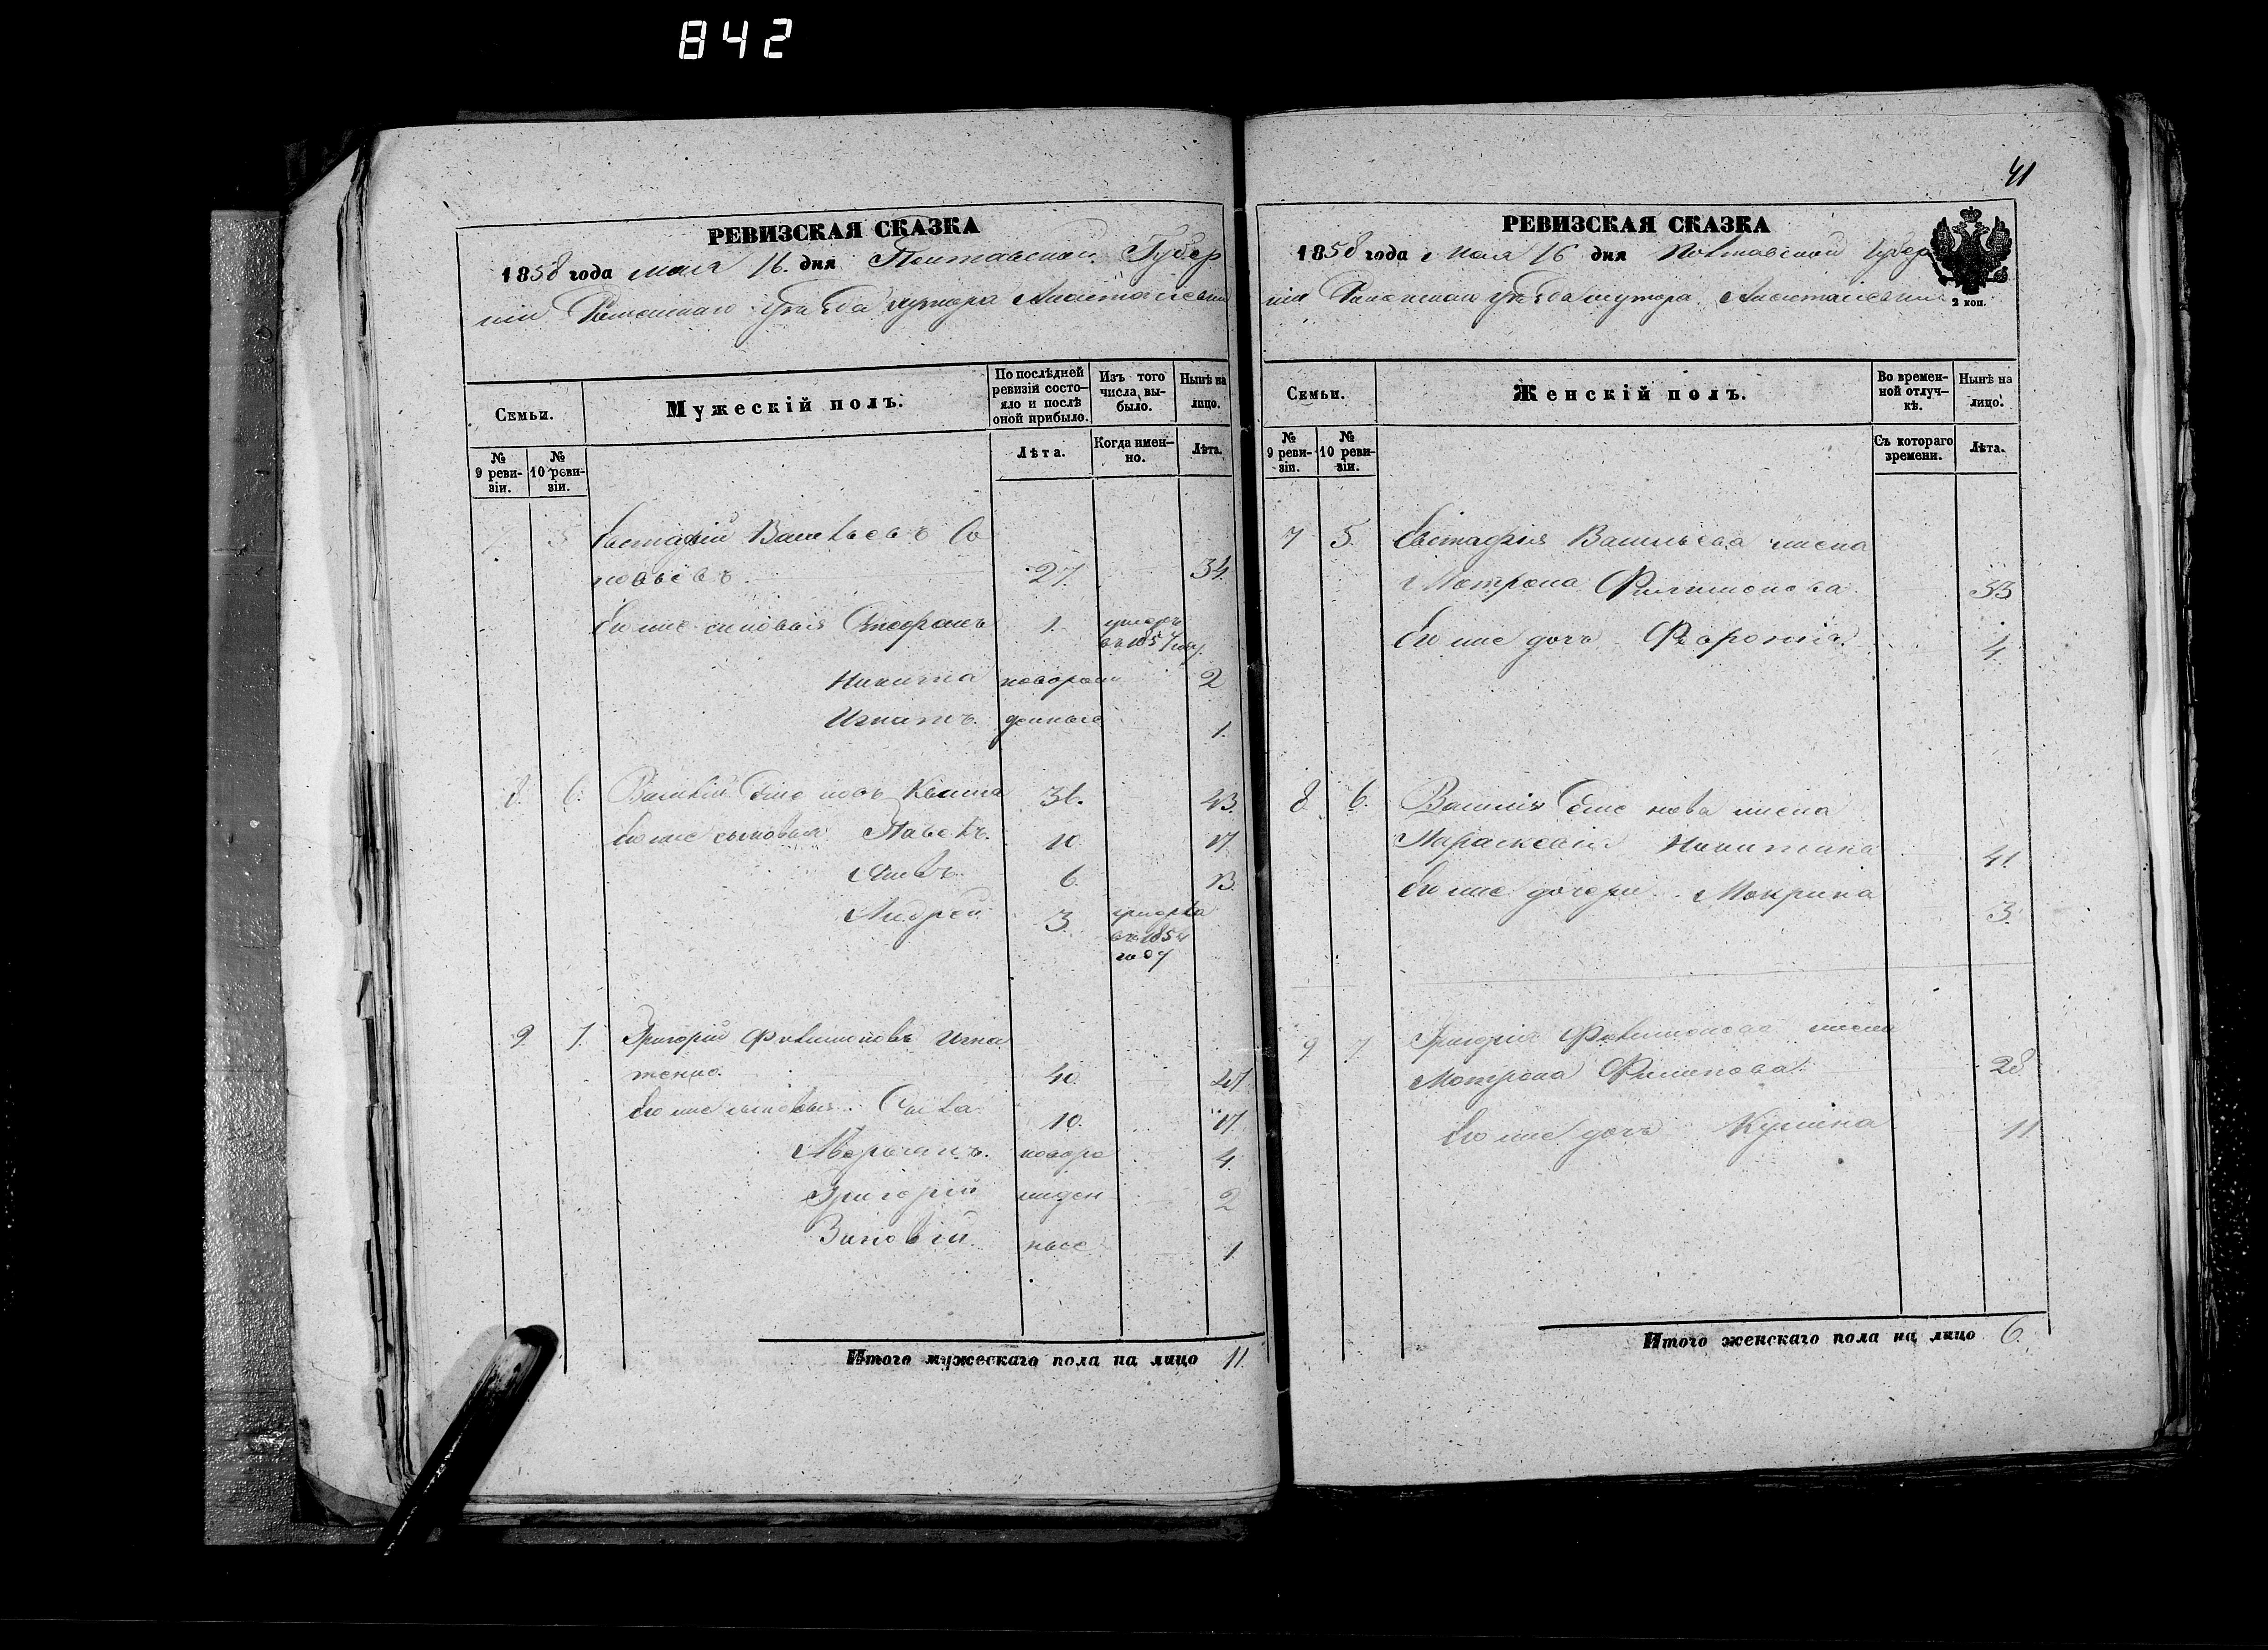 842
РЕВИЗСКАЯ СКАЗКА
1858 года мая 16. дня Полтавской Губер
ніи уѣзда хутора
Семьи.
Мужескій полъ.
По послѣдней ревизіи состояло и послѣ оной прибыло.
Изъ того числа выбыло.
Нынѣ на лицо.
№ 9 ревизіи.
№ 10 ревизіи.
Лѣта.
Когда именно.
Лѣта.
7 5 Евстафій Васильевъ Со
новьевъ. 27. 34.
Его же сыновья 1. умеръ
въ 1854 году.
Никита новорож 2
Игнатъ. денные 1.
8. 6. Василій 36. 43.
Его же сыновья Павелъ. 10. 17.
6. 13.
Андрей 3 умеръ
въ 1854
году
9 7. Григорій Филимоновъ Игна
тенко. 40. 47.
Его же сыновья Савва 10. 17.
Аверьянъ. новоро 4.
Григорій жден 2
Зиновій ные 1.
Итого мужескаго пола на лицо 11.
41
РЕВИЗСКАЯ СКАЗКА
1858 года Мая 16 дня Полтавской Губер
ніи уѣзда хутора
2 коп.
Семьи.
Женскій полъ.
Во временной отлучкѣ.
Нынѣ на лицо.
№ 9 ревизіи.
№ 10 ревизіи.
Съ котораго времени.
Лѣта.
7 5. Евстафія Васильева жена
Мотрона Филимонова 33
Его же дочь Фвронія. 4.
8 6. Василія жена
Параскевія Никитина 41.
Его же дочери Мокрина 3.
9 7. Григорія Филимонова жена
Мотрона Филипова. 28.
Его же дочь Кулина 11
Итого женскаго пола на лицо 6.